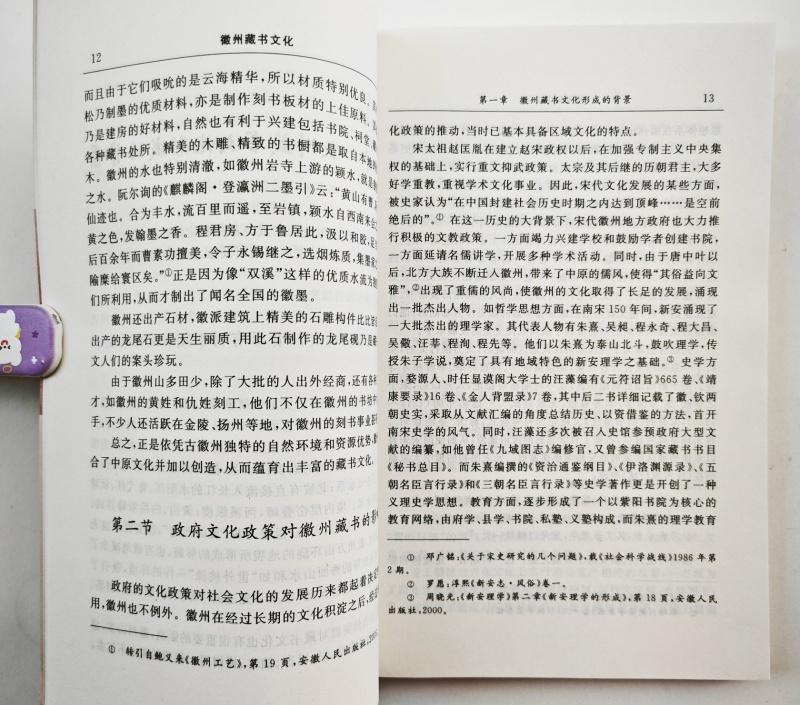 12
徽州藏书文化
而且由于它们吸吮的是云海精华，所以材质特别优良。
松乃制墨的优质材料，亦是制作刻书板材的上佳原料，
乃是建房的好材料，自然也有利于兴建包括书院、祠堂
各种藏书处所。精美的木雕、精致的书橱都是取自本地的
木。徽州的水也特别清澈，如徽州岩寺上游的颖水，就是
之水。阮尔询的《麒麟阁·登瀛洲二墨引》云：“黄山有
仙迹也。合为丰水，流百里而遥，至岩镇，颖水自西南来
黄之色，发翰墨之香。程君房、方于鲁居此，汲以和胶，
后百余年而曹素功擅美，令子永锡继之，选烟炼质，集墨
隃糜给寰区矣。”①正是因为像“双溪”这样的优质水流为
们所利用，从而才制出了闻名全国的徽墨。
徽州还出产石材，徽派建筑上精美的石雕构件比比皆
出产的龙尾石更是天生丽质，用此石制作的龙尾砚乃是
文人们的案头珍玩。
由于徽州山多田少，除了大批的人出外经商，还有各
才，如徽州的黄姓和仇姓刻工，他们不仅在徽州的书坊中
手，不少人还活跃在金陵、扬州等地，对徽州的刻书事业
总之，正是依凭古徽州独特的自然环境和资源优势，
合了中原文化并加以创造，从而蕴育出丰富的藏书文化。
第二节 政府文化政策对徽州藏书的
政府的文化政策对社会文化的发展历来都起着决定
用，徽州也不例外。徽州在经过长期的文化积淀之后，
① 转引自鲍义来《徽州工艺》，第 19 页，安徽人民出版社，
第一章 徽州藏书文化形成的背景
13
化政策的推动，当时已基本具备区域文化的特点。
宋太祖赵匡胤在建立赵宋政权以后，在加强专制主义中央集
权的基础上，实行重文抑武政策。太宗及其后继的历朝君主，大多
好学重教，重视学术文化事业。因此，宋代文化发展的某些方面，
被史家认为“在中国封建社会历史时期之内达到顶峰……是空前
绝后的”。①在这一历史的大背景下，宋代徽州地方政府也大力推
行积极的文教政策。一方面竭力兴建学校和鼓励学者创建书院，
一方面延请名儒讲学，开展多种学术活动。同时，由于唐中叶以
后，北方大族不断迁入徽州，带来了中原的儒风，使得“其俗益向文
雅”，②出现了重儒的风尚，使徽州的文化取得了长足的发展，涌现
出一批杰出人物。如哲学思想方面，在南宋 150 年间，新安涌现了
一大批杰出的理学家。其代表人物有朱熹、吴昶、程永奇、程大昌、
吴儆、汪莘、程洵、程先等。他们以朱熹为泰山北斗，鼓吹理学，传
授朱子学说，奠定了具有地域特色的新安理学之基础。③史学方
面，婺源人、时任显谟阁大学士的汪藻编有《元符诏旨》665 卷、《靖
康要录》16 卷、《金人背盟录》7 卷，其中后二书详细记载了徽、钦两
朝史实，采取从文献汇编的角度总结历史、以资借鉴的方法，首开
南宋史学的风气。同时，汪藻还多次被召入史馆参预政府大型文
献的编纂，如他曾任《九域图志》编修官，又曾参编国家藏书书目
《秘书总目》。而朱熹编撰的《资治通鉴纲目》、《伊洛渊源录》、《五
朝名臣言行录》和《三朝名臣言行录》等史学著作更是开创了一种
义理史学思想。教育方面，逐步形成了一个以紫阳书院为核心的
教育网络，由府学、县学、书院、私塾、义塾构成，而朱熹的理学教育
① 邓广铭：《关于宋史研究的几个问题》，载《社会科学战线》1986 年第
2 期。
② 罗愿：淳熙《新安志·风俗》卷一。
③ 周晓光：《新安理学》第二章《新安理学的形成》，第 18 页，安徽人民
出版社，2000。